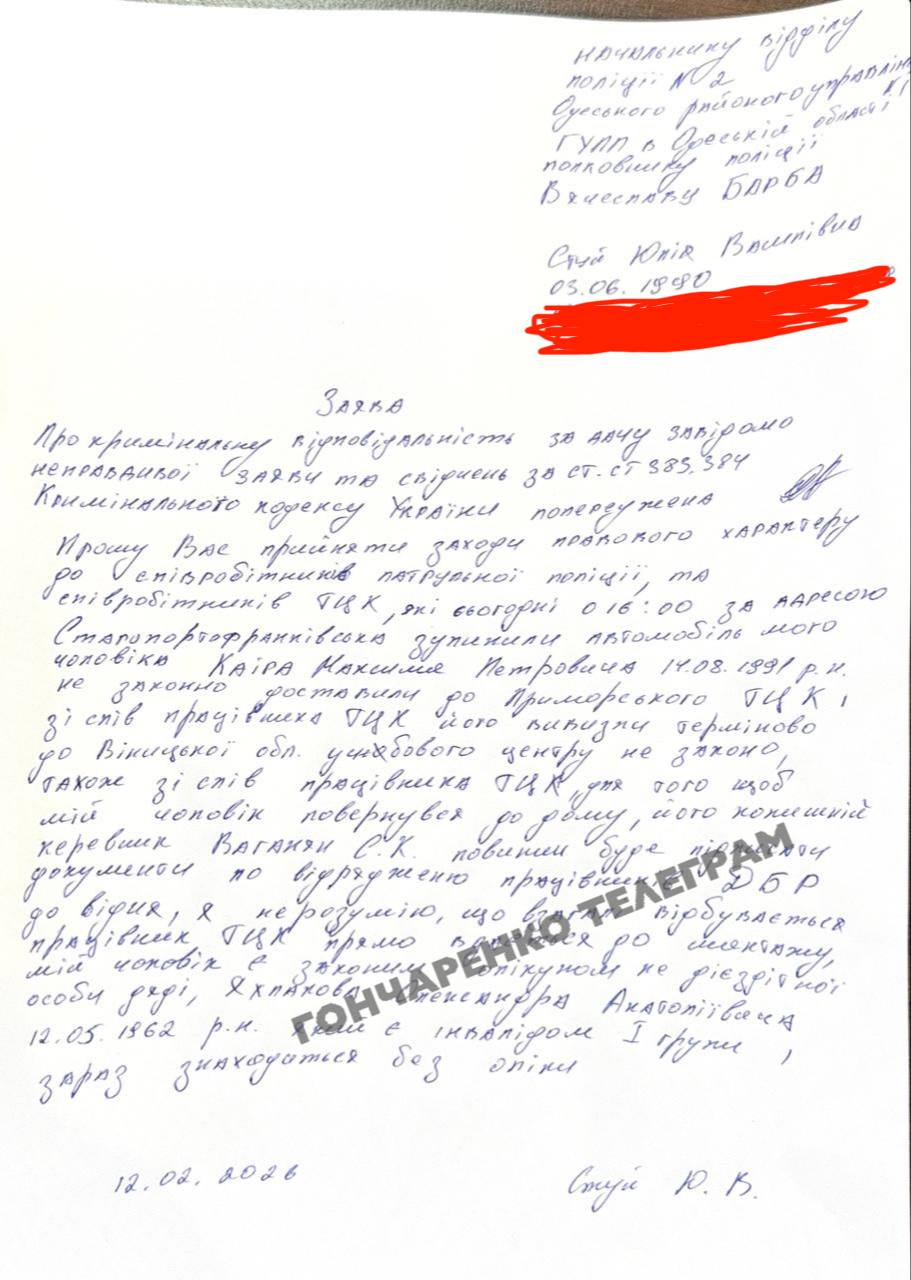 Начальнику відділу
поліції №2
Одеського районого управлін
ГУНП в Одеській області
полковнику поліції
Вячеславу БАРБА
Стуй Юлія
03.06.1990
Заява
Про кримінальну відповідальність за дачу завідомо
неправдивої заяви та свіднень за ст.ст 383, 384
Кримінального кодексу України попереджена
Прошу Вас прийняти заходи правового характеру
до співробітників патрульної поліції, та
співробітників ТЦК, які сьогодні о 16:00 за адресою
Старопортофранківська зупинили автомобіль мого
чоловіка Каіра Максима Петровича 14.08.1991 р.н.
не законно доставили до Приморського ТЦК,
зі слів працівника ТЦК його вивизли терміново
до Віницької обл. учебового центру не законо,
також зі слів працівника ТЦК, для того щоб
мій чоловік повернувся до дому, його колишній
керевник Ваганян С.К. повинин буде підписати
документи по відрядженю працівників ДБР
до відня, я нерозумію, що взагалі відбувається
працівник ТЦК прямо вдається до шантажу,
мій чоловік є законим опікуном не дієздітної
особи дяді, Яхлакова Александра Анатоліївича
12.05.1962 р.н. який є інвалідом І групи,
зараз знаходиться без опіки
12.02.2026 Стуй Ю. В.
ГОНЧАРЕНКО ТЕЛЕГРАМ